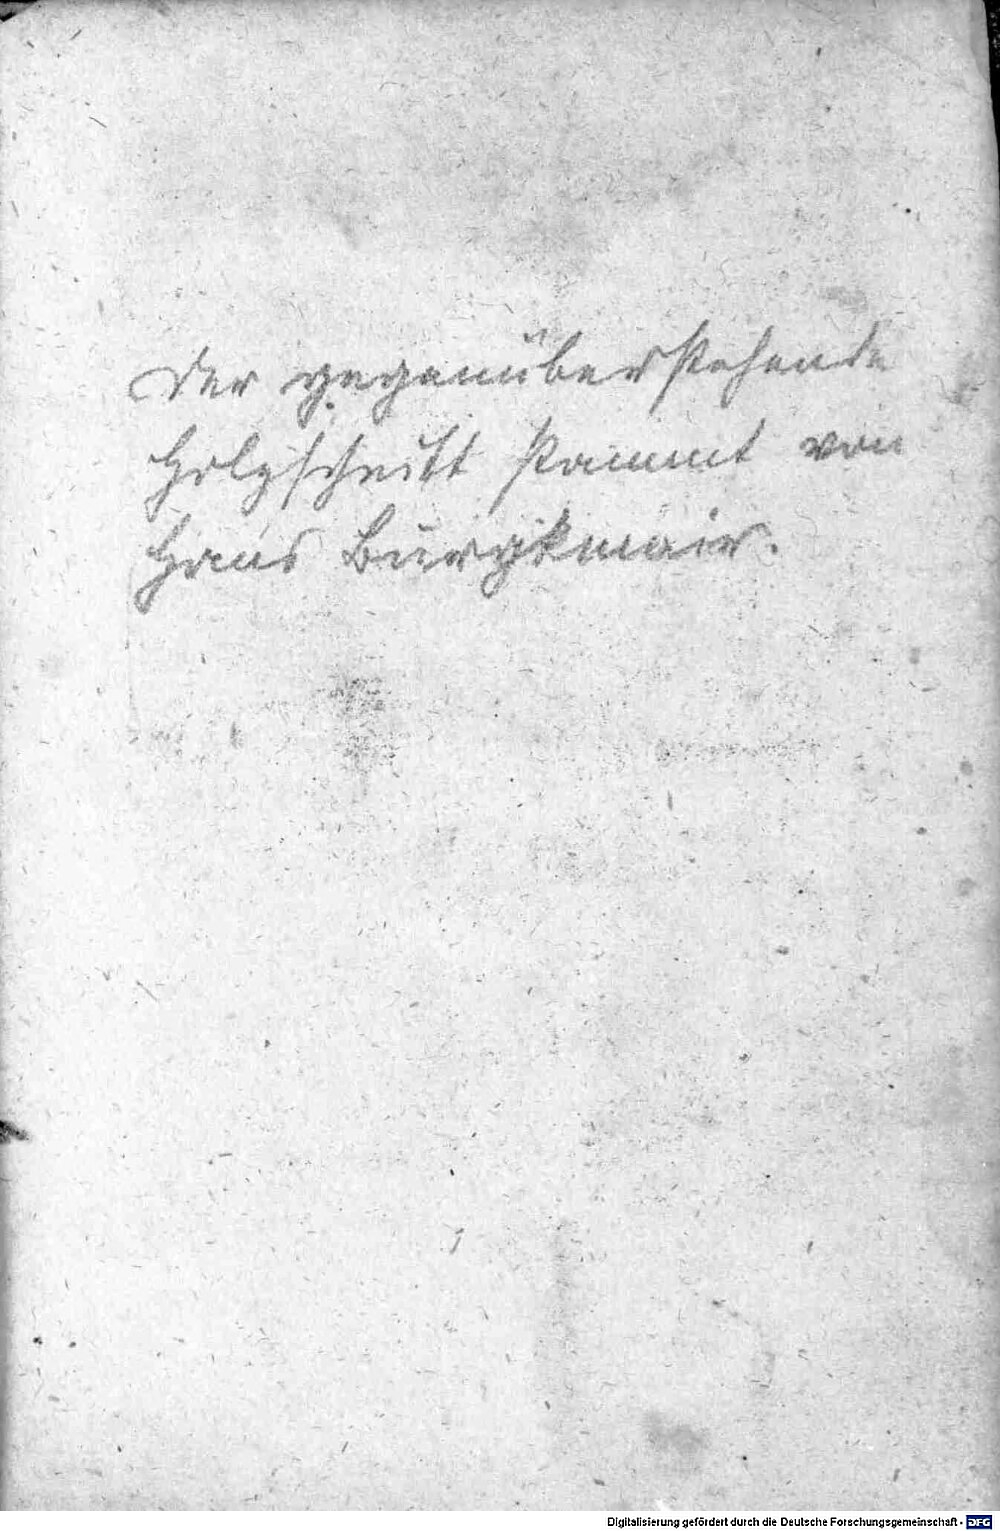 Der gegenüberstehende
Holzschnitt stammt von
Hans Burgkmair.
Digitalisierung gefördert durch die Deutsche Forschungsgemeinschaft - DFG